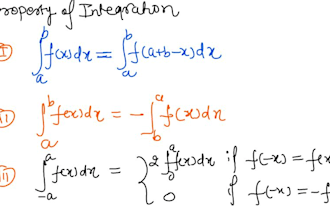 roperty of Integration
① ∫_a^b f(x)dx = ∫_a^b f(a+b-x)dx
ii) ∫_a^b f(x)dx = -∫_b^a f(x)dx
iii) ∫_{-a}^a f(x)dx = { 2∫_0^a f(x)dx if f(-x) = f(x
0 if f(-x) = -f